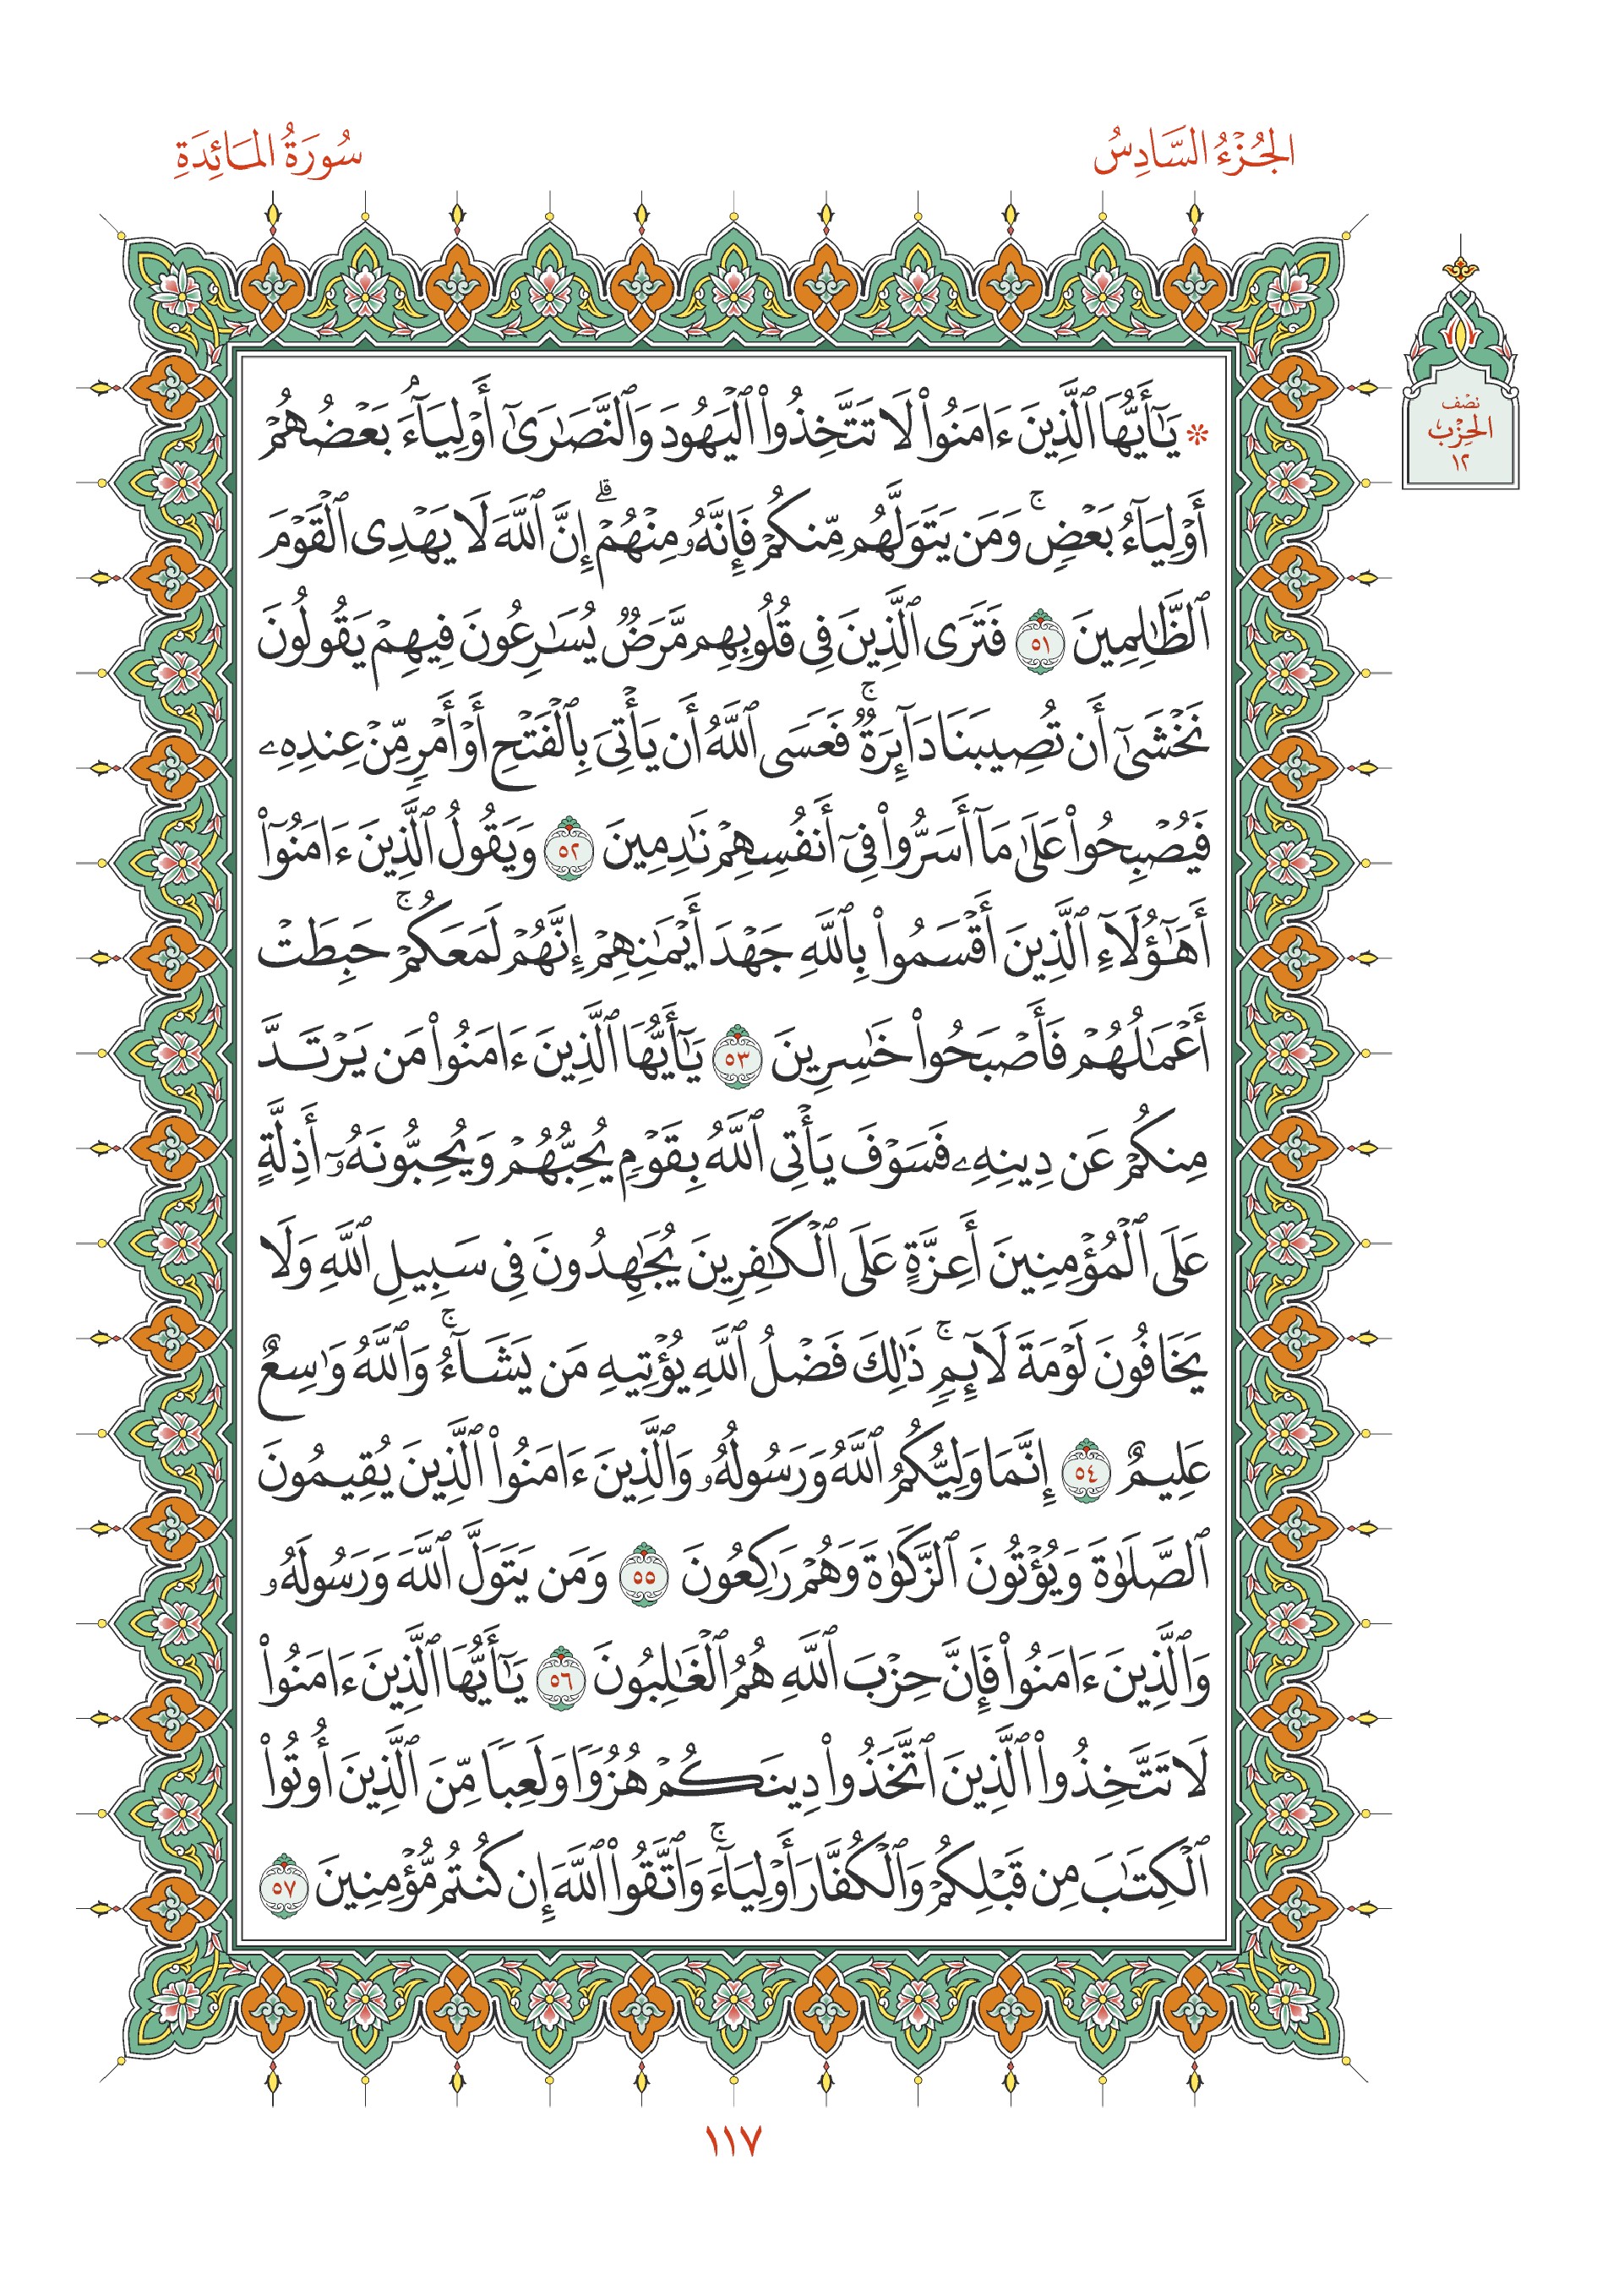 الجُزْءُ السَّادِسُ
سُورَةُ المَائِدَةِ
نصف
الحِزْب
١٢
* يَٰٓأَيُّهَا ٱلَّذِينَ ءَامَنُوا۟ لَا تَتَّخِذُوا۟ ٱلْيَهُودَ وَٱلنَّصَٰرَىٰٓ أَوْلِيَآءَۘ بَعْضُهُمْ
أَوْلِيَآءُ بَعْضٍۚ وَمَن يَتَوَلَّهُم مِّنكُمْ فَإِنَّهُۥ مِنْهُمْۗ إِنَّ ٱللَّهَ لَا يَهْدِى ٱلْقَوْمَ
ٱلظَّٰلِمِينَ ٥١ فَتَرَى ٱلَّذِينَ فِى قُلُوبِهِم مَّرَضٌ يُسَٰرِعُونَ فِيهِمْ يَقُولُونَ
نَخْشَىٰٓ أَن تُصِيبَنَا دَآئِرَةٌۚ فَعَسَى ٱللَّهُ أَن يَأْتِىَ بِٱلْفَتْحِ أَوْ أَمْرٍ مِّنْ عِندِهِۦ
فَيُصْبِحُوا۟ عَلَىٰ مَآ أَسَرُّوا۟ فِىٓ أَنفُسِهِمْ نَٰدِمِينَ ٥٢ وَيَقُولُ ٱلَّذِينَ ءَامَنُوٓا۟
أَهَٰٓؤُلَآءِ ٱلَّذِينَ أَقْسَمُوا۟ بِٱللَّهِ جَهْدَ أَيْمَٰنِهِمْ إِنَّهُمْ لَمَعَكُمْۚ حَبِطَتْ
أَعْمَٰلُهُمْ فَأَصْبَحُوا۟ خَٰسِرِينَ ٥٣ يَٰٓأَيُّهَا ٱلَّذِينَ ءَامَنُوا۟ مَن يَرْتَدَّ
مِنكُمْ عَن دِينِهِۦ فَسَوْفَ يَأْتِى ٱللَّهُ بِقَوْمٍ يُحِبُّهُمْ وَيُحِبُّونَهُۥٓ أَذِلَّةٍ
عَلَى ٱلْمُؤْمِنِينَ أَعِزَّةٍ عَلَى ٱلْكَٰفِرِينَ يُجَٰهِدُونَ فِى سَبِيلِ ٱللَّهِ وَلَا
يَخَافُونَ لَوْمَةَ لَآئِمٍۚ ذَٰلِكَ فَضْلُ ٱللَّهِ يُؤْتِيهِ مَن يَشَآءُۚ وَٱللَّهُ وَٰسِعٌ
عَلِيمٌ ٥٤ إِنَّمَا وَلِيُّكُمُ ٱللَّهُ وَرَسُولُهُۥ وَٱلَّذِينَ ءَامَنُوا۟ ٱلَّذِينَ يُقِيمُونَ
ٱلصَّلَوٰةَ وَيُؤْتُونَ ٱلزَّكَوٰةَ وَهُمْ رَٰكِعُونَ ٥٥ وَمَن يَتَوَلَّ ٱللَّهَ وَرَسُولَهُۥ
وَٱلَّذِينَ ءَامَنُوا۟ فَإِنَّ حِزْبَ ٱللَّهِ هُمُ ٱلْغَٰلِبُونَ ٥٦ يَٰٓأَيُّهَا ٱلَّذِينَ ءَامَنُوا۟
لَا تَتَّخِذُوا۟ ٱلَّذِينَ ٱتَّخَذُوا۟ دِينَكُمْ هُزُوًا وَلَعِبًا مِّنَ ٱلَّذِينَ أُوتُوا۟
ٱلْكِتَٰبَ مِن قَبْلِكُمْ وَٱلْكُفَّارَ أَوْلِيَآءَۚ وَٱتَّقُوا۟ ٱللَّهَ إِن كُنتُم مُّؤْمِنِينَ ٥٧
١١٧